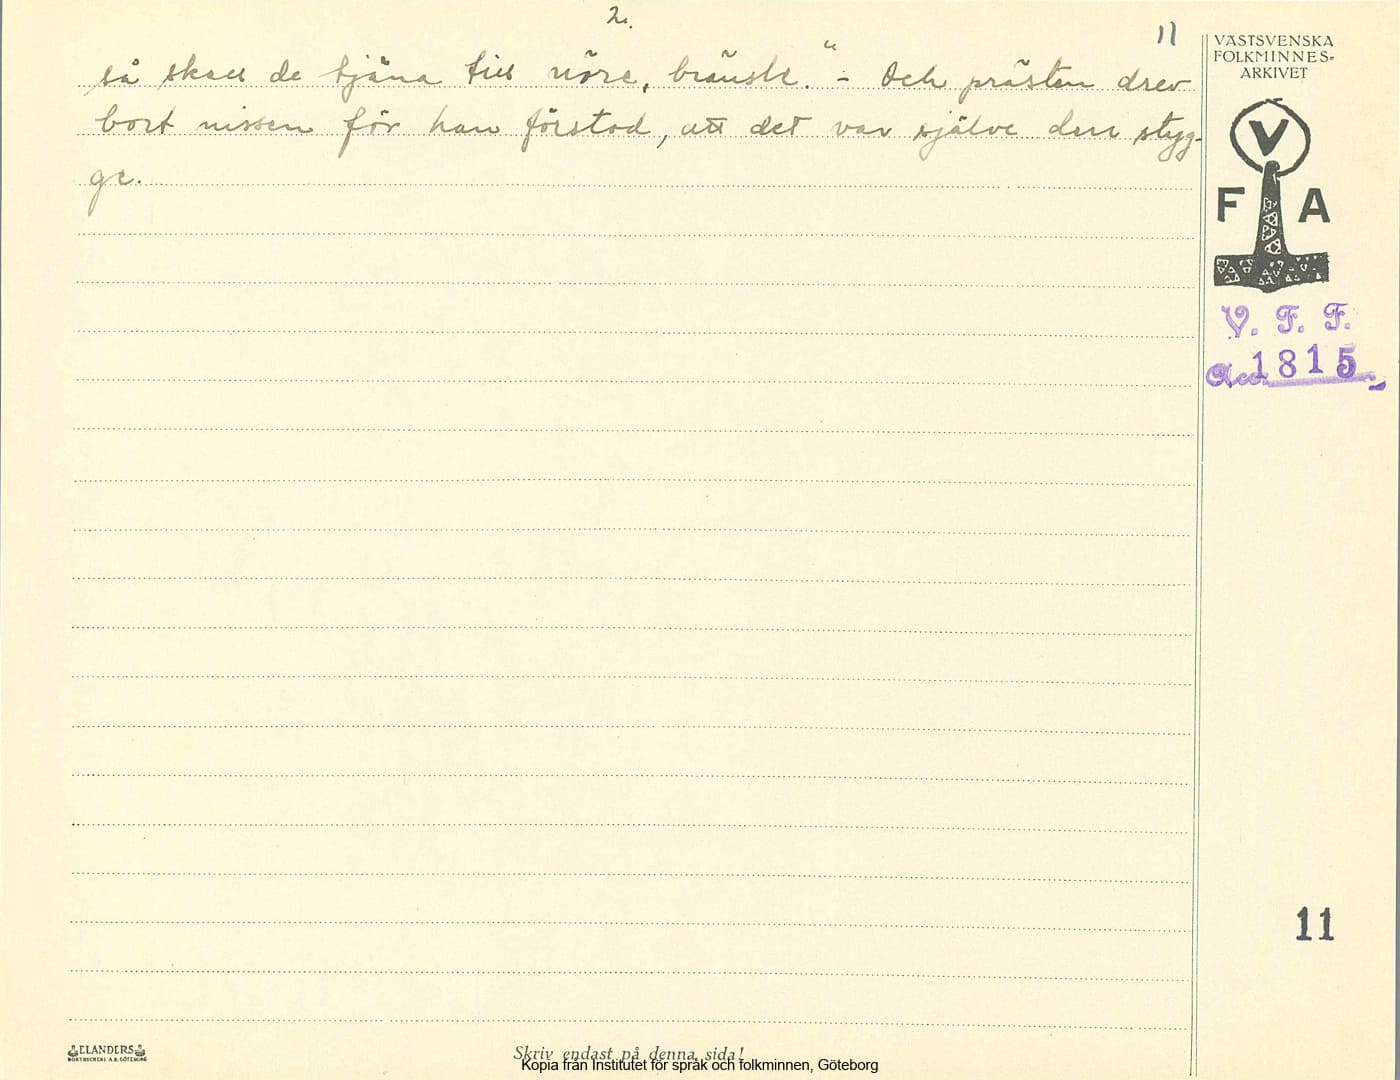 2.
11
så skall de tjäna till nöre, bränsle." - Och prästen drev
bort nissen för han förstod, att det var själve den styg-
ge.
VÄSTSVENSKA
FOLKMINNES-
ARKIVET
V
F A
V. F. F.
Acc. 1815
11
ELANDERS
BOKTRYCKERI A.B. GÖTEBORG
Skriv endast på denna sida!
Kopia från Institutet för språk och folkminnen, Göteborg